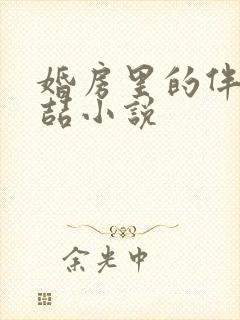 婚房里的伴
喆小说
余光中